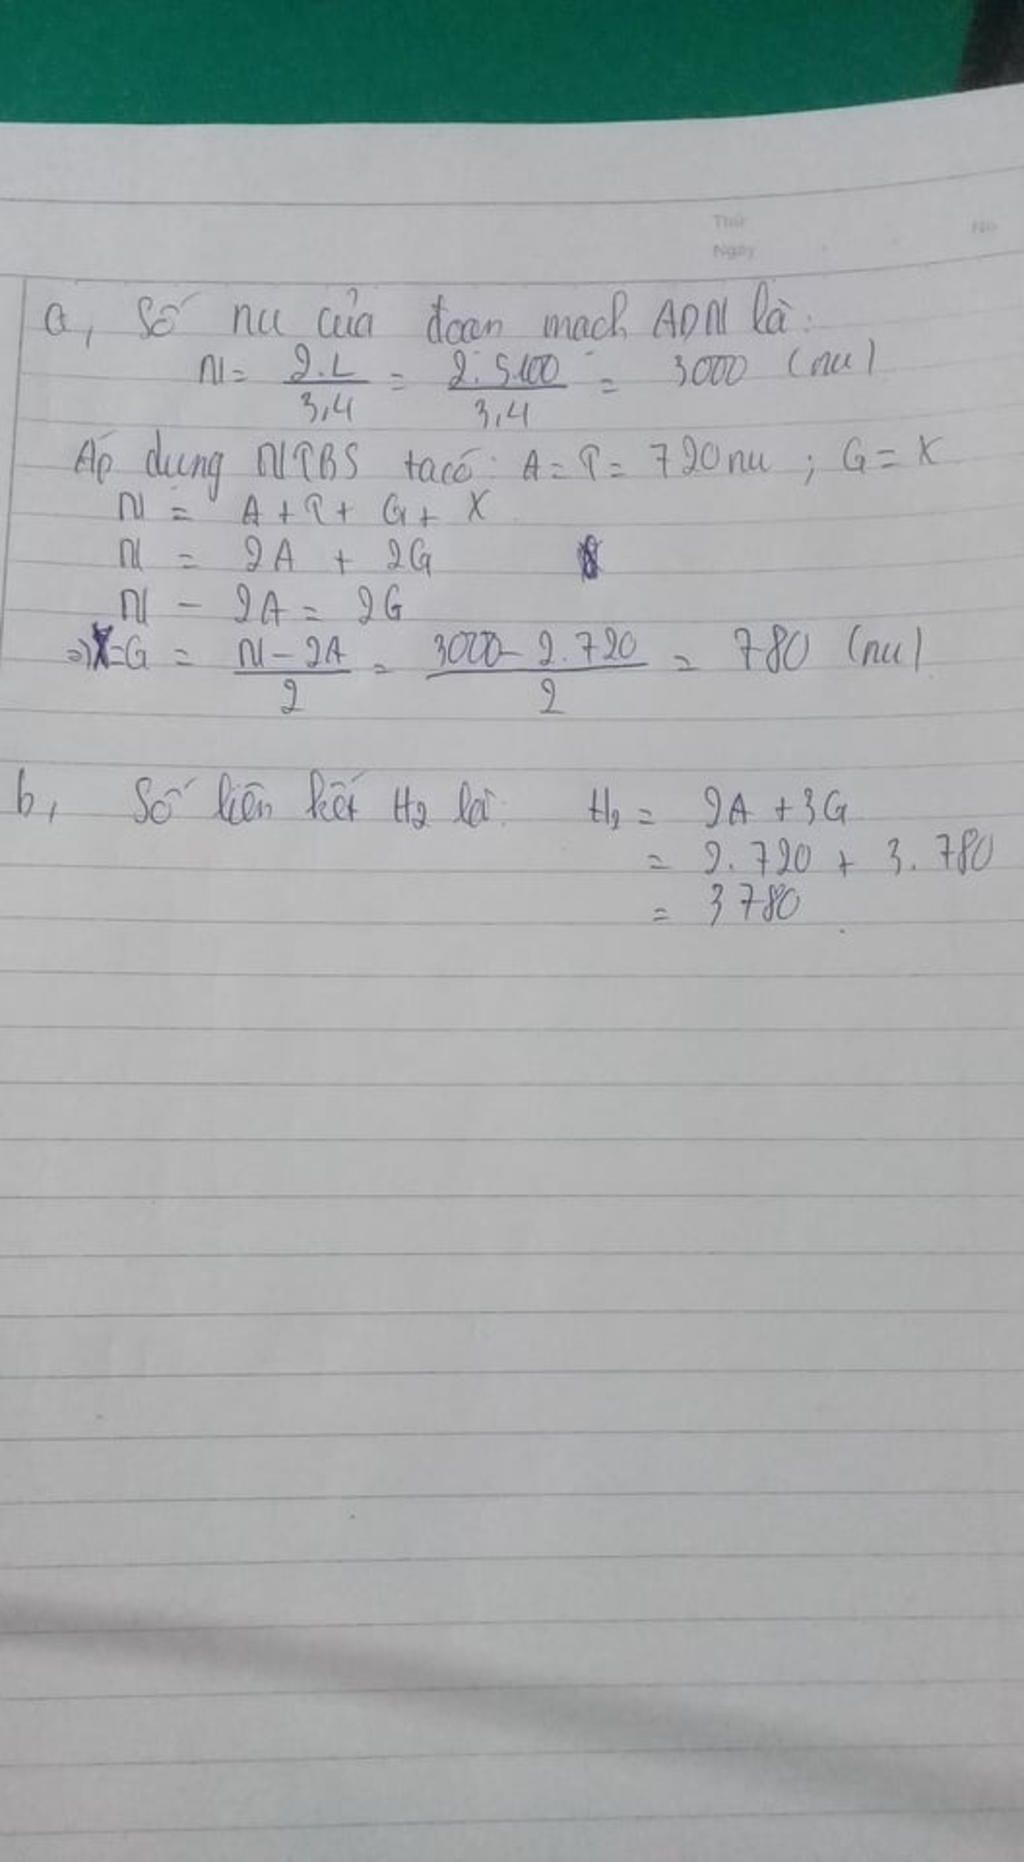 Thứ
Ngày No
a, Số nu của đoạn mạch ADN là:
N = 2.L / 3,4 = 2.5100 / 3,4 = 3000 (nu)
Áp dụng NTBS ta có: A = T = 720 nu ; G = X
N = A + T + G + X
N = 2A + 2G
N - 2A = 2G
=> X = G = N - 2A / 2 = 3000 - 2.720 / 2 = 780 (nu)
b, Số liên kết H2 là: H2 = 2A + 3G
= 2.720 + 3.780
= 3780